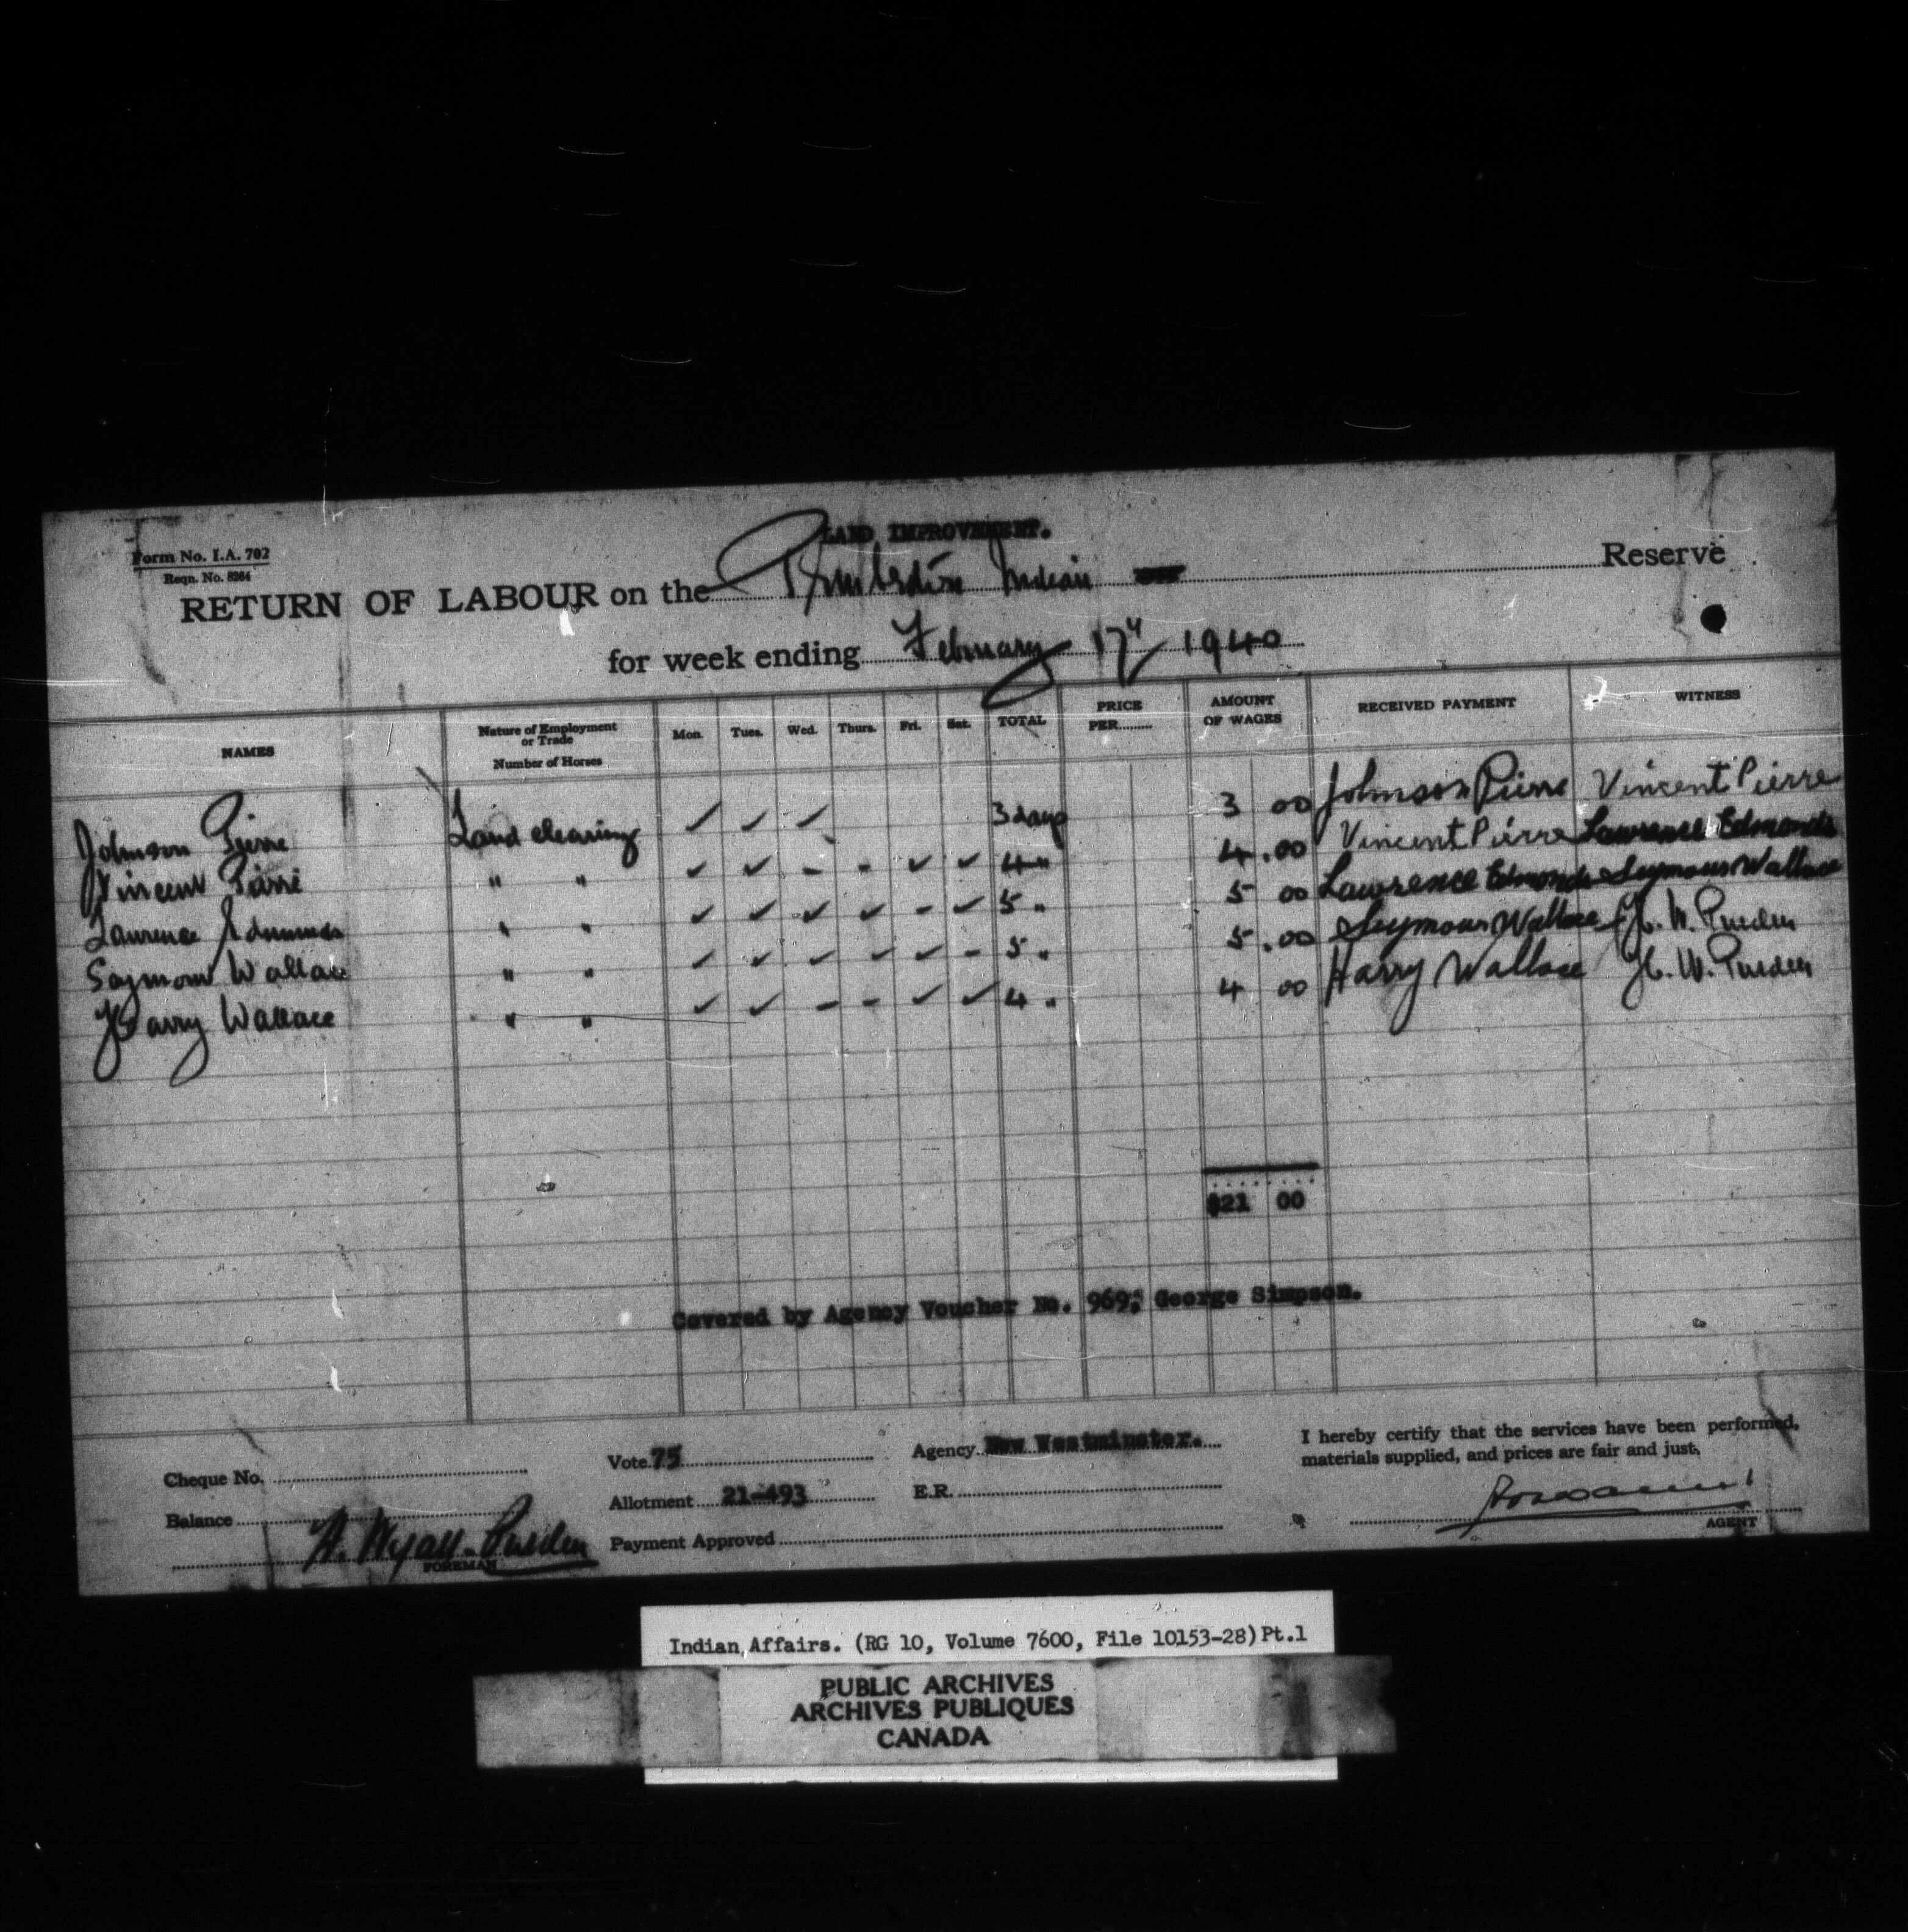 LAND IMPROVEMENT.
Form No. I.A. 702
Reqn. No. 8264
RETURN OF LABOUR on the Pemberton Indian Reserve
for week ending February 17th 1940
NAMES Nature of Employment or Trade Number of Horses Mon. Tues. Wed. Thurs. Fri. Sat. TOTAL PRICE PER........ AMOUNT OF WAGES RECEIVED PAYMENT WITNESS
Johnson Pierre Land clearing ✓ ✓ ✓ 3 days 3 00 Johnson Pierre Vincent Pierre
Vincent Pierre " " ✓ ✓ - - ✓ ✓ 4 " 4.00 Vincent Pierre Lawrence Edmonds
Laurence Edmunds " " ✓ ✓ ✓ ✓ - ✓ 5 " 5 00 Lawrence Edmonds Seymour Wallace
Seymour Wallace " " ✓ ✓ ✓ ✓ ✓ - 5 " 5.00 Seymour Wallace H. W. Purden
Harry Wallace " " ✓ ✓ - - ✓ ✓ 4 " 4 00 Harry Wallace H. W. Purden
$21 00
Covered by Agency Voucher No. 969; George Simpson.
Cheque No. Vote 75 Agency New Westminster. I hereby certify that the services have been performed,
materials supplied, and prices are fair and just.
Balance Allotment 21-493 E.R.
H. Wyatt-Purden Payment Approved
FOREMAN AGENT
Indian Affairs. (RG 10, Volume 7600, File 10153-28) Pt.1
PUBLIC ARCHIVES
ARCHIVES PUBLIQUES
CANADA